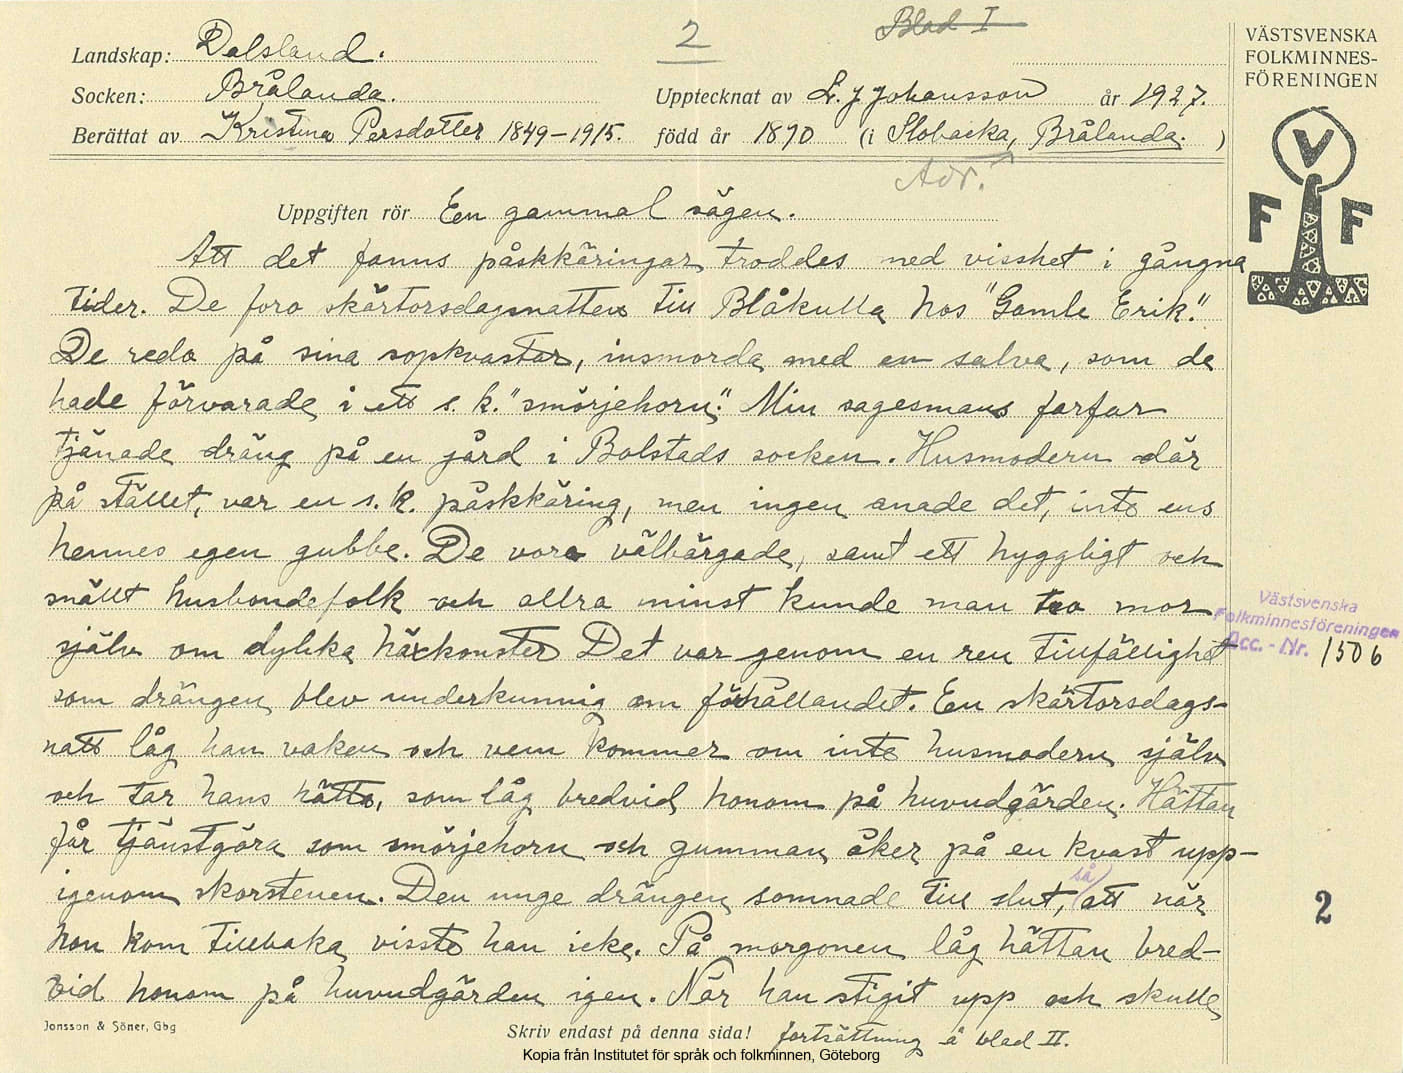 2
Blad I
Landskap: Dalsland.
Socken: Brålanda.
Upptecknat av L. J Johansson år 1927.
Berättat av Kristina Persdotter 1849-1915. född år 1890 (i Slobacka, Brålanda. )
Adr.
VÄSTSVENSKA
FOLKMINNES-
FÖRENINGEN
V
F F
Uppgiften rör En gammal sägen.
Att det fanns påskkäringar troddes med visshet i gångna
tider. De foro skärtorsdagsnatten till Blåkulla hos "Gamle Erik."
De redo på sina sopkvastar, insmorda med en salva, som de
hade förvarade i ett s. k. "smörjehorn". Min sagesmans farfar
tjänade dräng på en gård i Bolstads socken. Husmodern där
på stället, var en s. k. påskkäring, men ingen anade det, inte ens
hennes egen gubbe. De voro välbärgade, samt ett hyggligt och
snällt husbondefolk och allra minst kunde man tro mor
själv om dylika häxkonster Det var genom en ren tillfällighet
som drängen blev underkunnig om förhållandet. En skärtorsdags-
natt låg han vaken och vem kommer om inte husmodern själv
och tar hans hätta, som låg bredvid honom på huvudgärden. Hättan
får tjänstgöra som smörjehorn och gumman åker på en kvast upp-
igenom skorstenen. Den unge drängen somnade till slut, så att när
hon kom tillbaka visste han icke. På morgonen låg hättan bred-
vid honom på huvudgärden igen. När han stigit upp och skulle
Västsvenska
Folkminnesföreningen
Acc. - Nr. 1506
2
Jonsson & Söner, Gbg
Skriv endast på denna sida! fortsättning å blad II.
Kopia från Institutet för språk och folkminnen, Göteborg